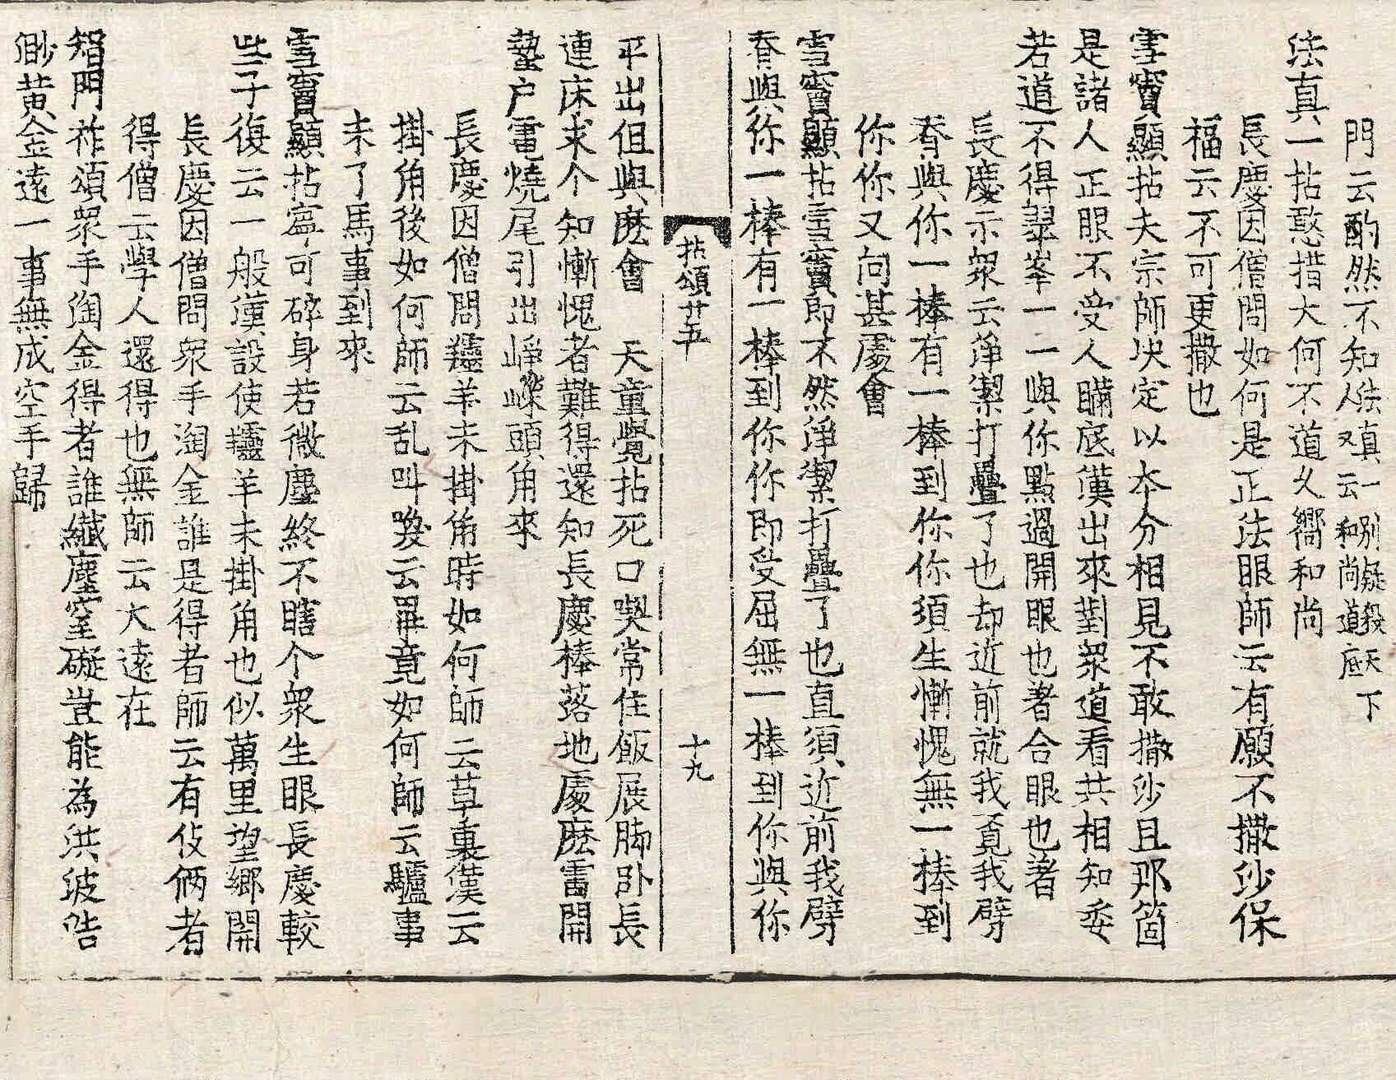 門云酌然不知人法真一別疑殺天下
又云和尚道底
法真一拈憨措大何不道久嚮和尚
長慶因僧問如何是正法眼師云有願不撒沙保
福云不可更撒也
雪竇顯拈夫宗師決定以本分相見不敢撒沙且那箇
是諸人正眼不受人瞞底漢出來對衆道看共相知委
若道不得翠峯一一與你點過開眼也著合眼也著
長慶示衆云淨潔打疊了也却近前就我覓我劈
脊與你一棒有一棒到你你須生慚愧無一棒到
你你又向甚處會
雪竇顯拈雪竇即不然淨潔打疊了也直須近前我劈
脊與你一棒有一棒到你你即受屈無一棒到你與你
拈頌廿五
十九
平出但與麽會　天童覺拈死口喫常住飯展脚卧長
連床求个知慚愧者難得還知長慶棒落地處麽雷開
蟄户電燒尾引出崢嶸頭角來
長慶因僧問羺羊未掛角時如何師云草裏漢云
掛角後如何師云乱叫喚云畢竟如何師云驢事
未了馬事到來
雪竇顯拈寧可碎身若微塵終不瞎个衆生眼長慶較
些子復云一般漢設使羺羊未掛角也似萬里望鄉開
長慶因僧問衆手淘金誰是得者師云有伎倆者
得僧云學人還得也無師云大遠在
智門祚頌衆手淘金得者誰纖塵窒礙豈能為洪波浩
渺黄金遠一事無成空手歸